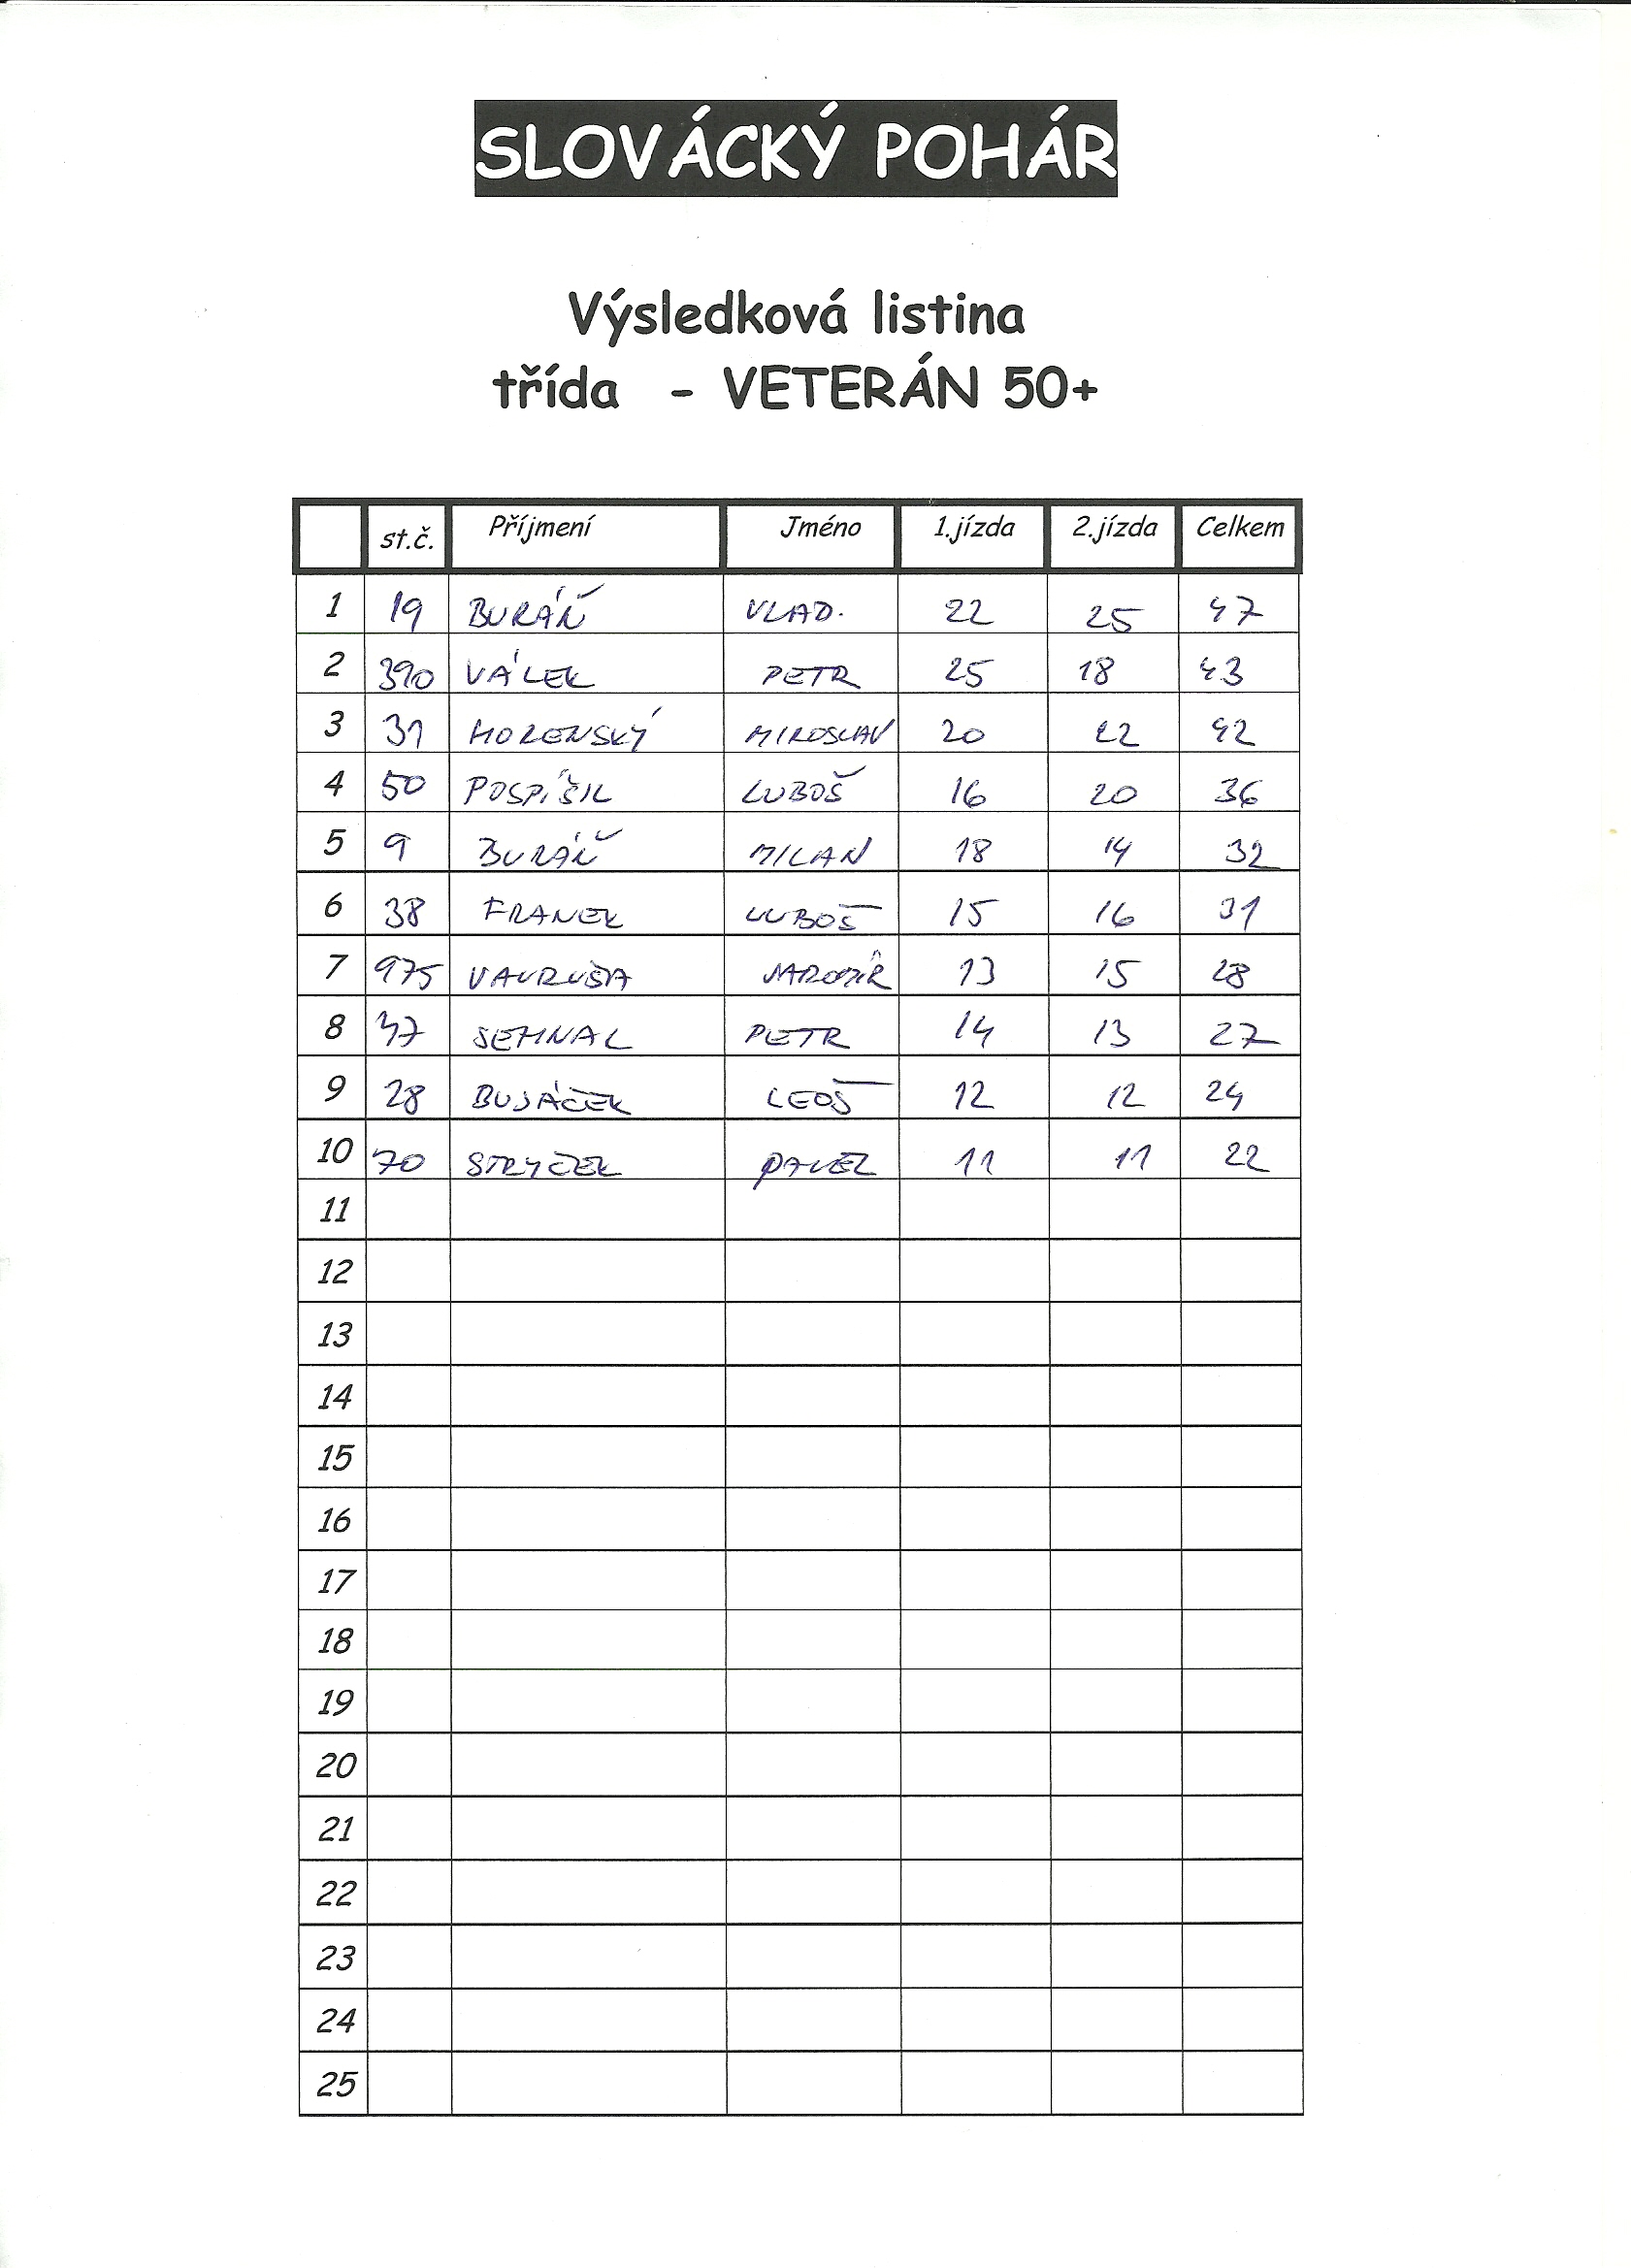 SLOVÁCKÝ POHÁR
Výsledková listina
třída - VETERÁN 50+
st.č. Příjmení Jméno 1.jízda 2.jízda Celkem
1 19 BURÁŇ VLAD. 22 25 47
2 390 VÁLEK PETR 25 18 43
3 31 HORENSKÝ MIROSLAV 20 22 42
4 50 POSPÍŠIL LUBOŠ 16 20 36
5 9 BURÁŇ MILAN 18 14 32
6 38 FRANEK LUBOŠ 15 16 31
7 975 VAVRUŠA JAROMÍR 13 15 28
8 47 SEHNAL PETR 14 13 27
9 28 BUJÁČEK LEOŠ 12 12 24
10 70 STRYČEK PAVEL 11 11 22
11
12
13
14
15
16
17
18
19
20
21
22
23
24
25